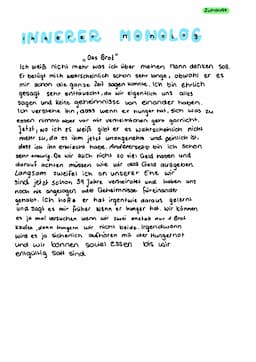 Zuhause
INNERER MONOLOG
„Das Brot"
Ich weiß nicht mehr was ich über meinen Mann denken soll.
Er belügt mich wahrscheinlich schon sehr lange, obwohl er es
mir schon die ganze Zeit sagen konnte. Ich bin ehrlich
gesagt sehr enttäuscht, da wir eigentlich uns alles
sagen und keine geheimnisse von einander haben.
Ich verstehe ihn, dass wenn er hunger hat, sich was zu
essen nimmt aber vor mir verheimlichen geht garnicht.
Jetzt, wo ich es weiß gibt er es wahrscheinlich nicht
mehr zu, da es ihm jetzt unangenehm und peinlich ist,
dass ich ihn erwischt habe. Andererseits bin ich schon
sehr traurig. Da wir auch nicht so viel Geld haben und
darauf achten müssen wie wir das Geld ausgeben.
Langsam zweifel ich an unserer Ehe wir
sind jetzt schon 39 Jahre verheiratet und haben uns
noch nie angelogen oder Geheimnisse füreinander
gehabt. Ich hoffe er hat irgentwie daraus gelernt
und sagt es mir früher wenn er hunger hat. Wir können
es ja mal versuchen wenn wir zwei anstatt nur 1 Brot
kaufen, dann hungern wir nicht beide. Irgendwann
wird es ja sicherlich aufhören mit der Hungernot
und wir können soviel essen bis wir
entgültig satt sind.